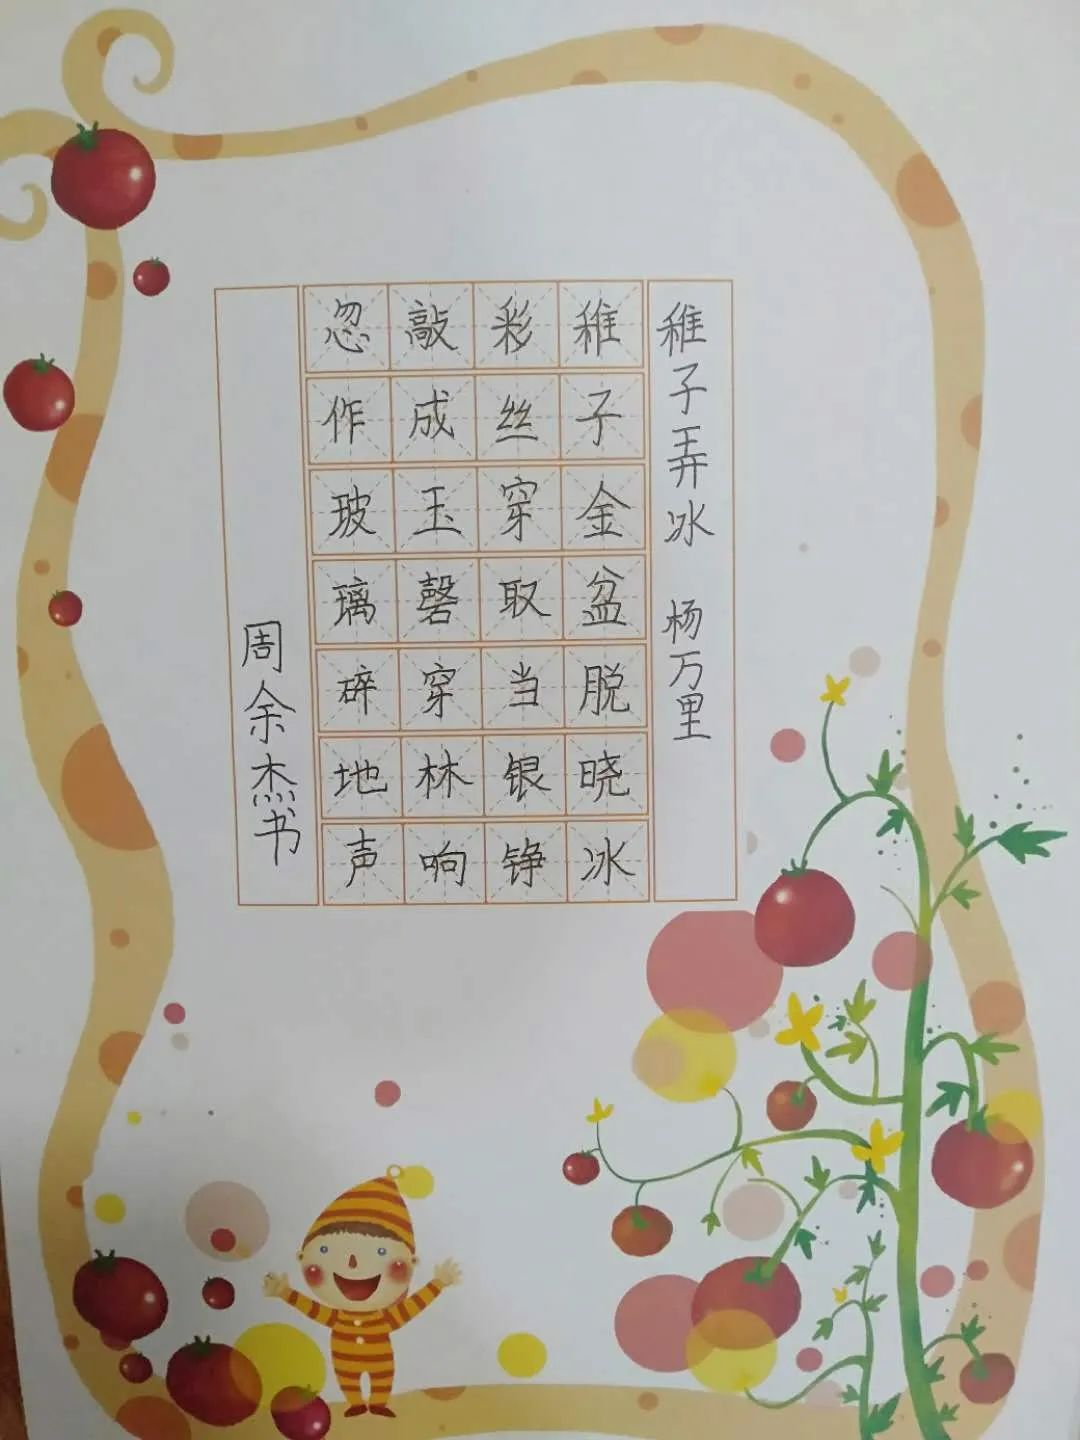 稚子弄冰 杨万里
稚子金盆脱晓冰
彩丝穿取当银铮
敲成玉磬穿林响
忽作玻璃碎地声
周余杰书